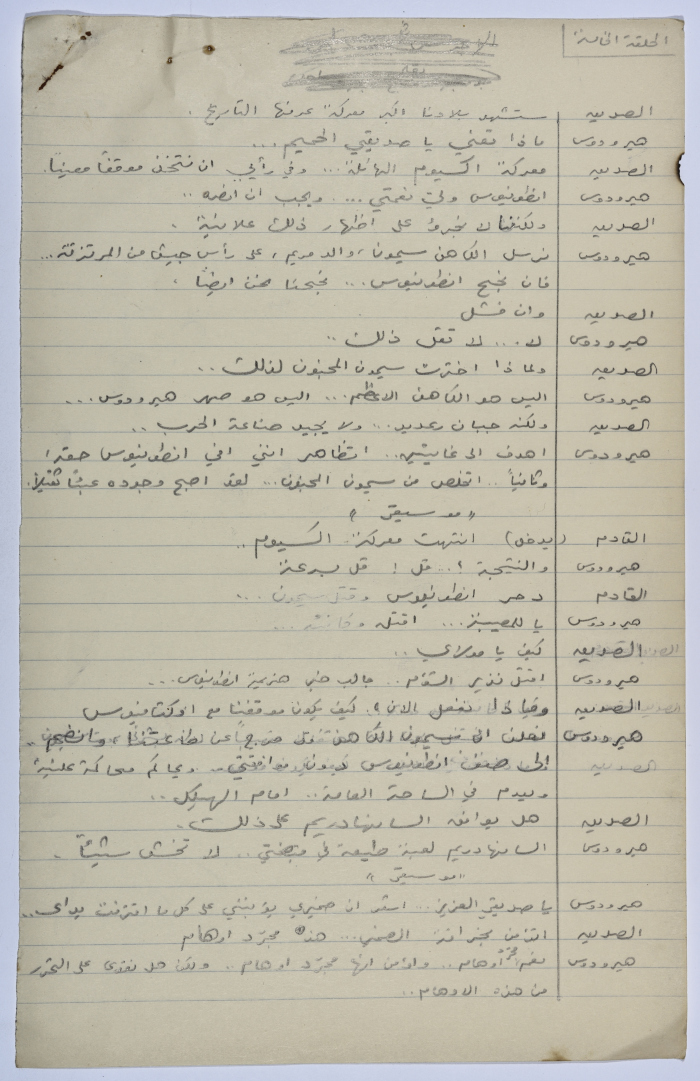 الحلقة الخامسة
الصديق ستشهد بلادنا اكبر معركة عرفها التاريخ .
هيرودوس ماذا تعني يا صديقي الحميم ...
الصديق معركة اكسيوم الهائلة ... وفي رأيي ان نتخذ موقفاً معيناً.
هيرودوس انطونيوس ولي نعمتي .... ويجب ان انصره ..
الصديق ولكننا لا نجرؤ على اظهار ذلك علانية .
هيرودوس نرسل الكاهن سيمون ، والد مريم ، على رأس جيش من المرتزقة ...
فان نجح انطونيوس ... نجحنا نحن ايضاً ،
الصديق وان فشل
هيرودوس لا ... لا تقل ذلك ..
الصديق ولماذا اخترت سيمون المجنون لذلك ...
هيرودوس اليس هو الكاهن الاعظم ... اليس هو صهر هيرودوس ...
الصديق ولكنه جبان رعديد ... ولا يجيد صناعة الحرب ..
هيرودوس اهدف الى غايتين .. اتظاهر انني افي انطونيوس حقه !
وثانياً .. اتخلص من سيمون المجنون ... لقد اصبح وجوده عبئاً ثقيلاً.
" موسيقى "
القادم (يدخل) انتهت معركة اكسيوم ..
هيرودوس والنتيجة ؟ .. قل ! قل بسرعة
القادم دحر انطونيوس وقتل سيمون ...
هيرودوس يا للمصيبة ... اقتله
الصديق كيف يا مولاي ..
هيرودوس اقتل نذير الشؤم .. جالب خبر هزيمة انطونيوس ...
الصديق وماذا نفعل الآن ؟ كيف يكون موقفنا مع اوكتافيوس
هيرودوس نعلن ان سيمون الكاهن خرج عن
الى صف انطونيوس بدون موافقتي .. ويحاكم محاكمة علنية
ويعدم في الساحة العامة .. امام الهيكل ..
الصديق هل يوافق السانهادريم على ذلك .
هيرودوس السانهادريم لعبة طيعة في قبضتي .. لا تخش شيئاً .
" موسيقى "
هيرودوس يا صديقي العزيز ... اشعر ان ضميري يؤنبني على كل ما اقترفت يداي ..
الصديق اتؤمن بخرافة الضمير ... هذه مجرد اوهام
هيرودوس نعم أوهام .. واؤمن انها مجرد اوهام .. ولكن هل نقوى على التحرر
من هذه الاوهام ..